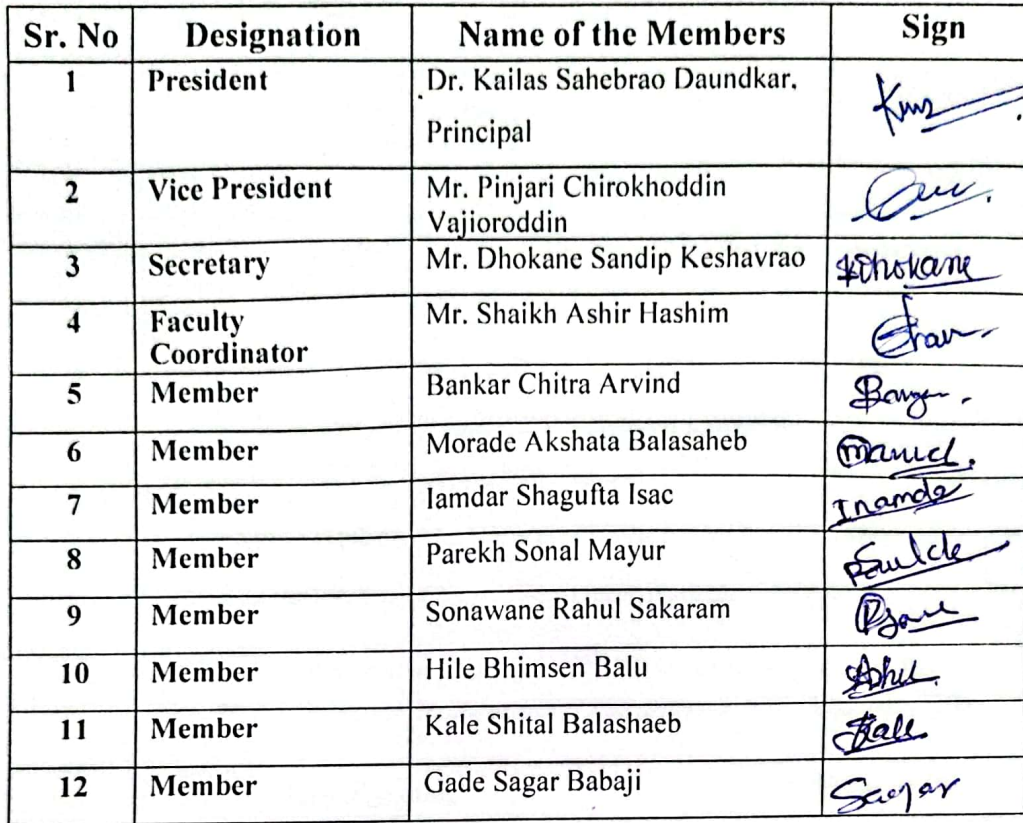 Sr. No Designation Name of the Members Sign
1 President Dr. Kailas Sahebrao Daundkar,
Principal
2 Vice President Mr. Pinjari Chirokhoddin
Vajioroddin
3 Secretary Mr. Dhokane Sandip Keshavrao Dhokane
4 Faculty Mr. Shaikh Ashir Hashim
Coordinator
5 Member Bankar Chitra Arvind
6 Member Morade Akshata Balasaheb
7 Member Iamdar Shagufta Isac Inamda
8 Member Parekh Sonal Mayur
9 Member Sonawane Rahul Sakaram
10 Member Hile Bhimsen Balu
11 Member Kale Shital Balashaeb Kale
12 Member Gade Sagar Babaji Sagar